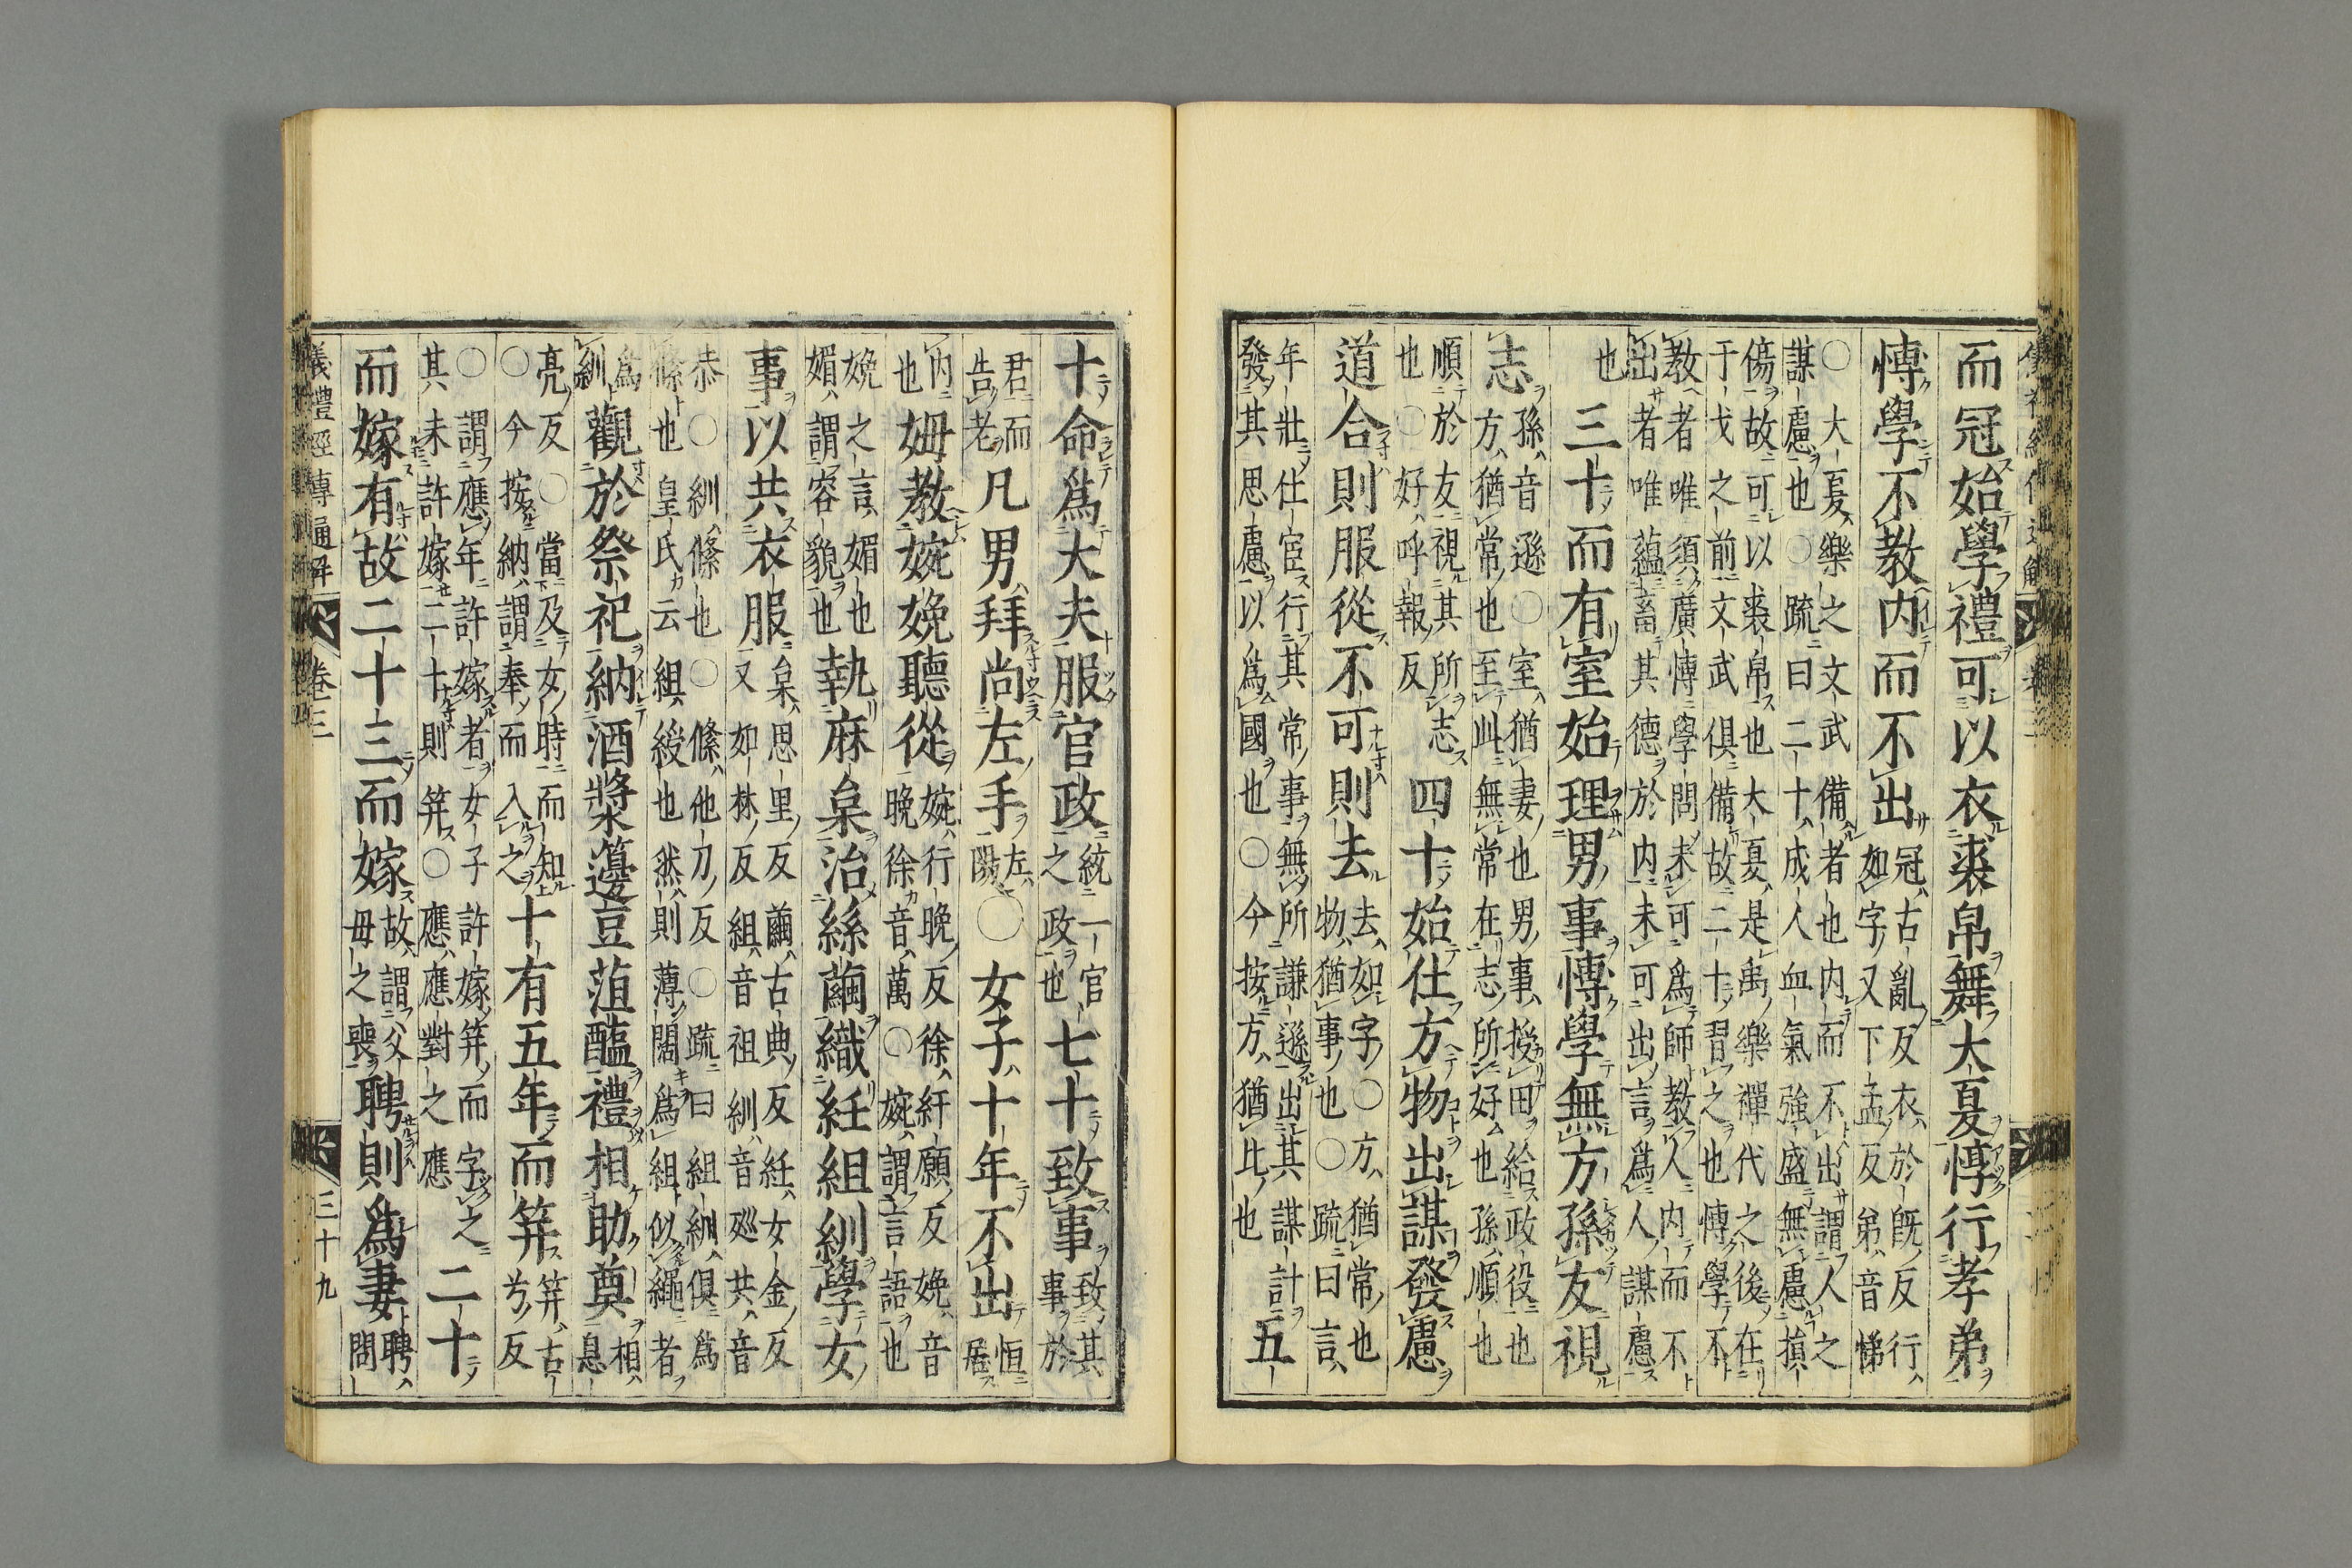 而冠始學禮可以衣裘帛舞大夏惇行孝弟
愽學不教内而不出
冠古亂反衣於既反行
如字又下孟反弟音悌
○大夏樂之文武備者也内而不出謂人之
謀慮也○疏曰二十成人血氣強盛無慮損
傷故可以裘帛也大夏是禹樂禪代之後在
于戈之前文武俱備故二十習之也愽學不
教者唯須廣愽學問未可爲師教人内而不
出者唯蘊畜其德於内未可出言爲人謀慮
也
三十而有室始理男事愽學無方孫友視
志
孫音遜○室猶妻也男事授田給政役也
方猶常也至此無常在志所好也孫順也
順於友視其所志
也○好呼報反
四十始仕方物出謀發慮
道合則服從不可則去
去如字○方猶常也
物猶事也○疏曰言
年壯仕宦行其常事無所謙遜出其謀計
發其思慮以爲國也○今按方猶比也
五
十命爲大夫服官政
統一官
之政也
七十致事
致其
事於
君而
告老
凡男拜尚左手
左
陽
○女子十年不出
恒
居
内
也
姆教婉娩聽從
婉行晩反徐紆願反娩音
晩徐音萬○婉謂言語也
娩之言媚也
媚謂容貌也
執麻枲治絲繭織紝組紃學女
事以共衣服
枲思里反繭古典反紝女金反
又如林反組音祖紃音巡共音
恭○紃絛也○絛他刀反○疏曰組紃俱爲
絛也皇氏云組綬也然則薄闊爲組似繩者
爲
紃
觀於祭祀納酒漿籩豆菹醢禮相助奠
相
息
亮反○當及女時而知
○今按納謂奉而入之
十有五年而笄
笄古
兮反
○謂應年許嫁者女子許嫁笄而字之
其未許嫁二十則笄○應應對之應
二十
而嫁有故二十三而嫁
故謂父
母之喪
聘則爲妻
聘
問
儀禮經傳通解 卷三 三十九